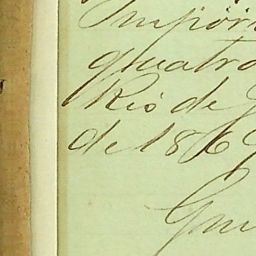 Impor
quatro
Rio de J
de 186
Gui